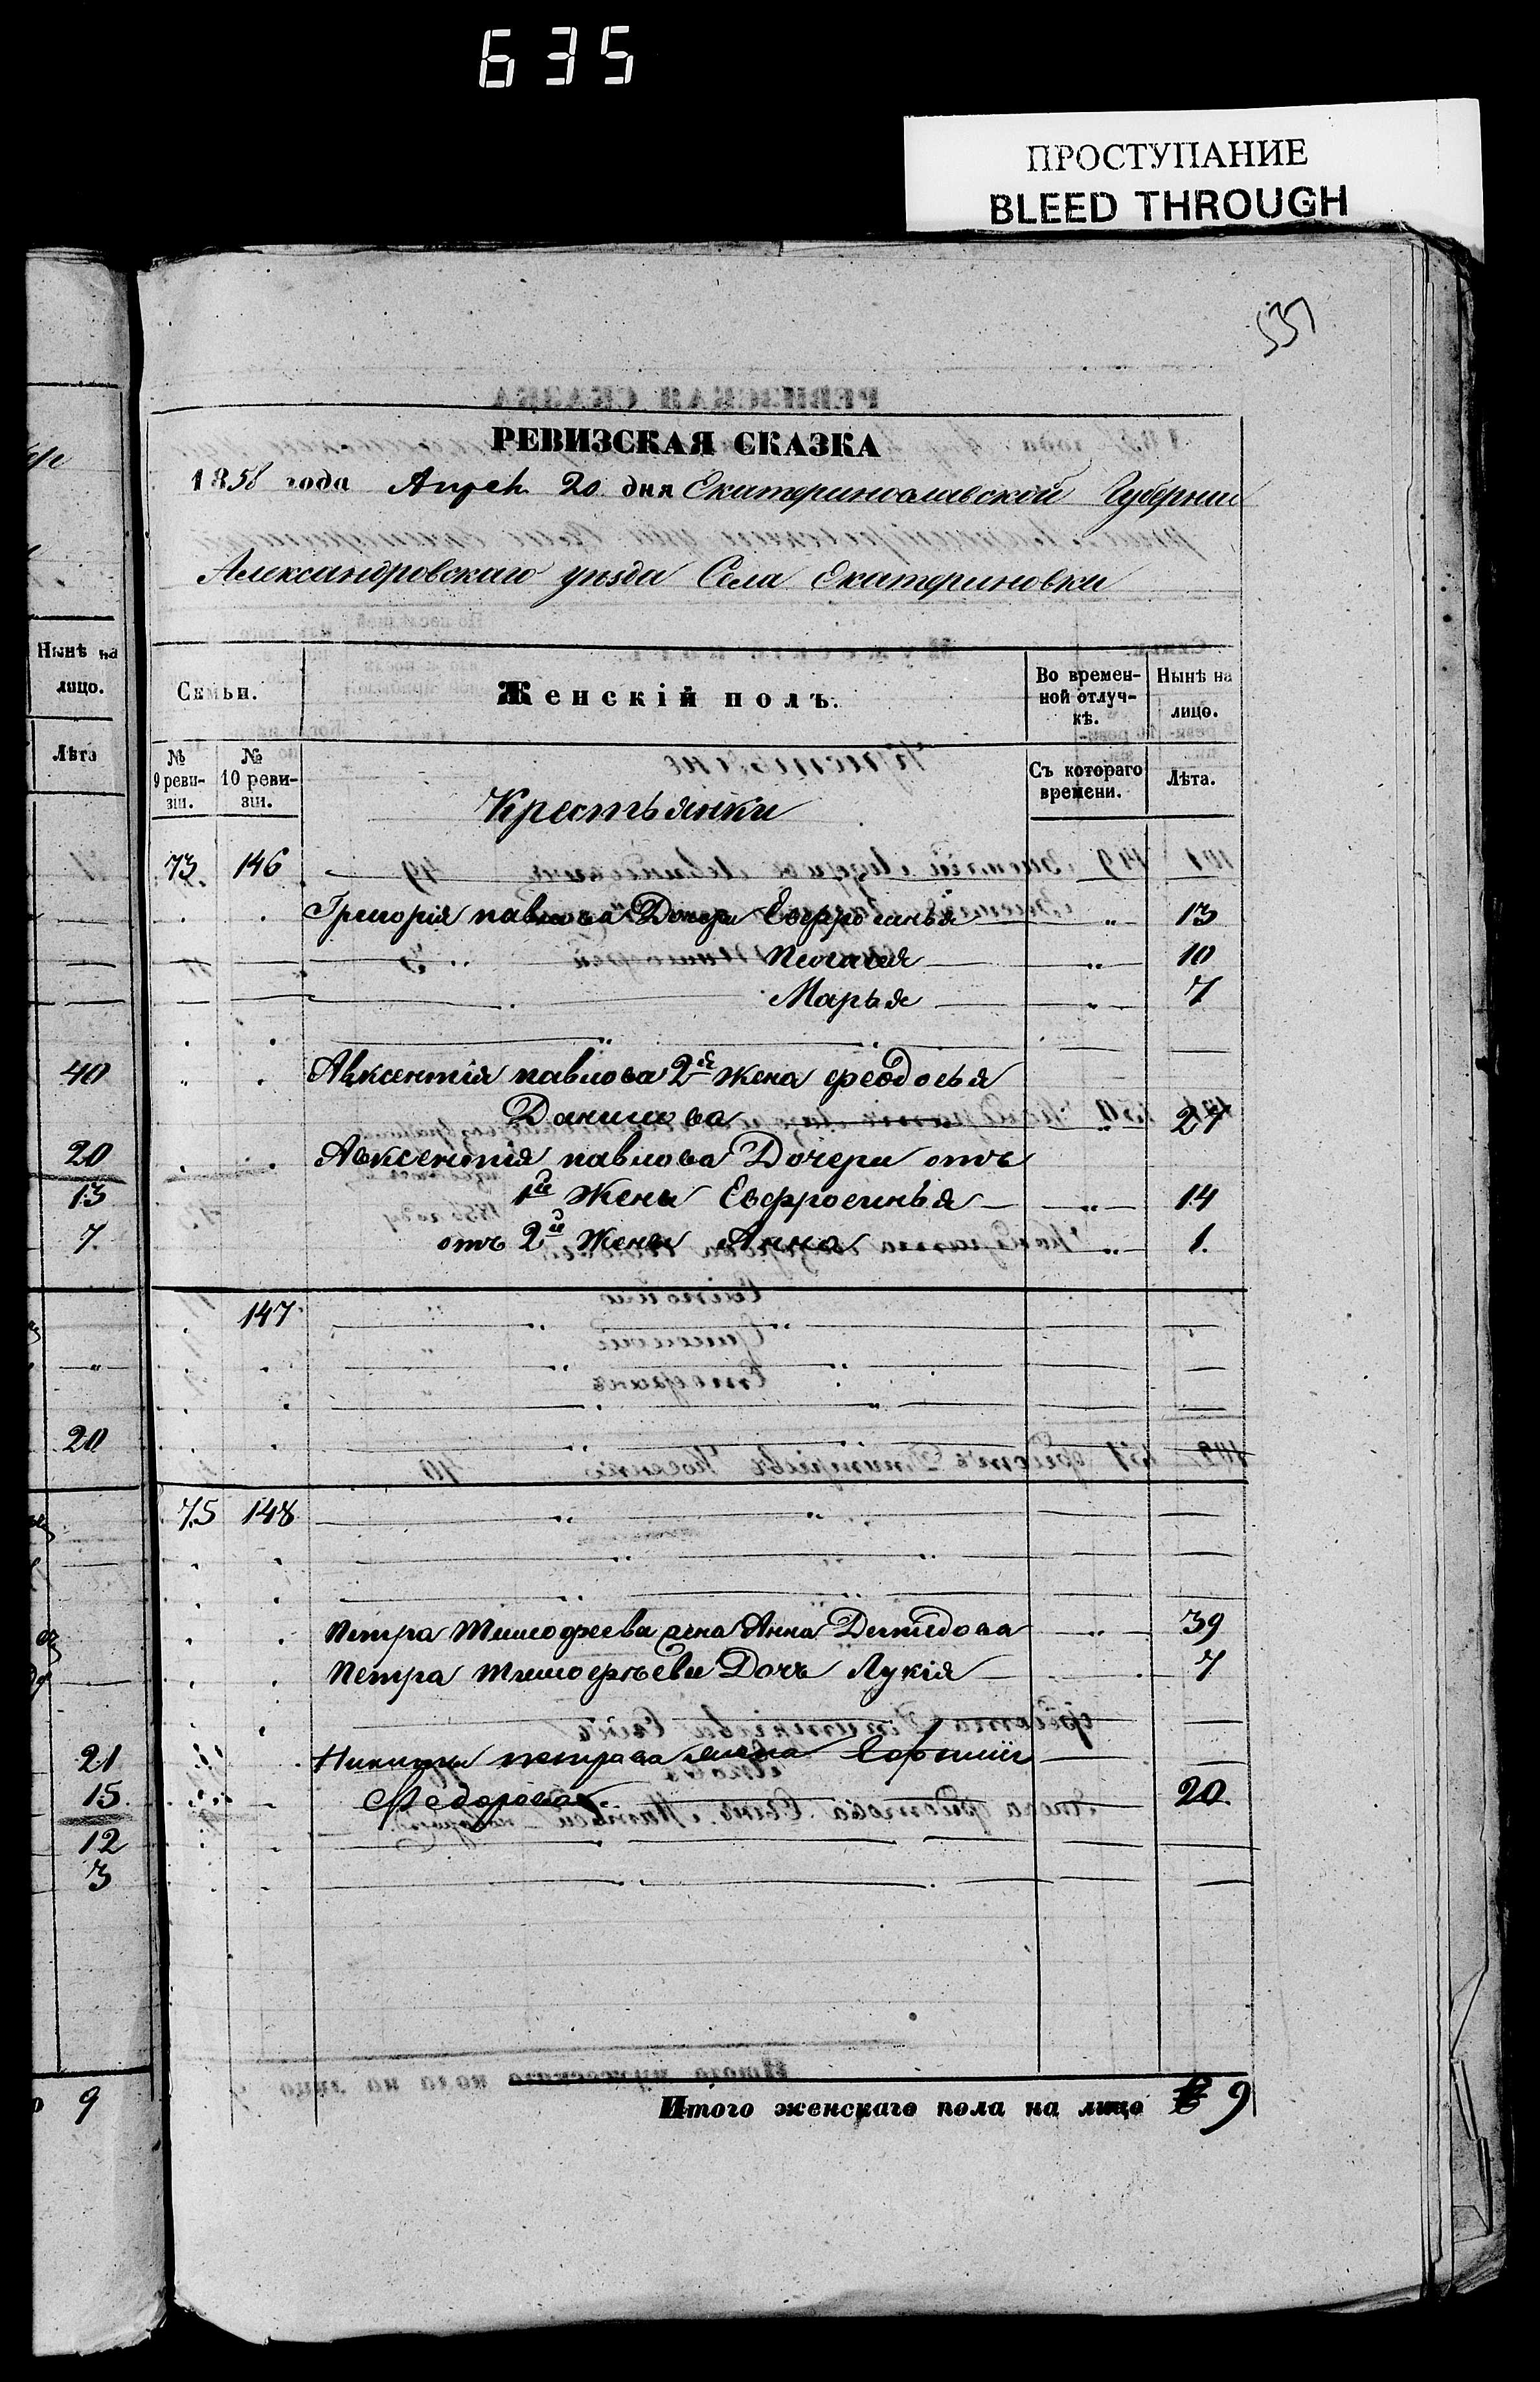 635
ПРОСТУПАНИЕ
BLEED THROUGH
537
РЕВИЗСКАЯ СКАЗКА
1858 года Апрѣл. 20 дня Екатеринославской Губерніи
Александровскаго уѣзда Села Екатериновки
Нынѣ на лицо.
Лѣта
Семьи.
Женскій полъ.
Во временной отлучкѣ.
Нынѣ на лицо.
№ 9 ревизіи.
№ 10 ревизіи.
Съ котораго времени.
Лѣта.
Крестьянки
73 146
Григорія павлова Дочери Евфросинья 13
Пелагея 10
Марья 7
40
Авксентія павлова 2я жена феодосья
Данилова 27
20
Авксентія павлова Дочери отъ
13
1й Жены Евфросинья 14
7
отъ 2й Жены Анна 1.
147
20
75 148
Петра Тимофеева жена Анна Демидова 39
Петра тимофѣева Дочь Лукія 7
21
Никиты петрова жена Софiя
15
Федорова 20
12
3
9
Итого женскаго пола на лицо 9